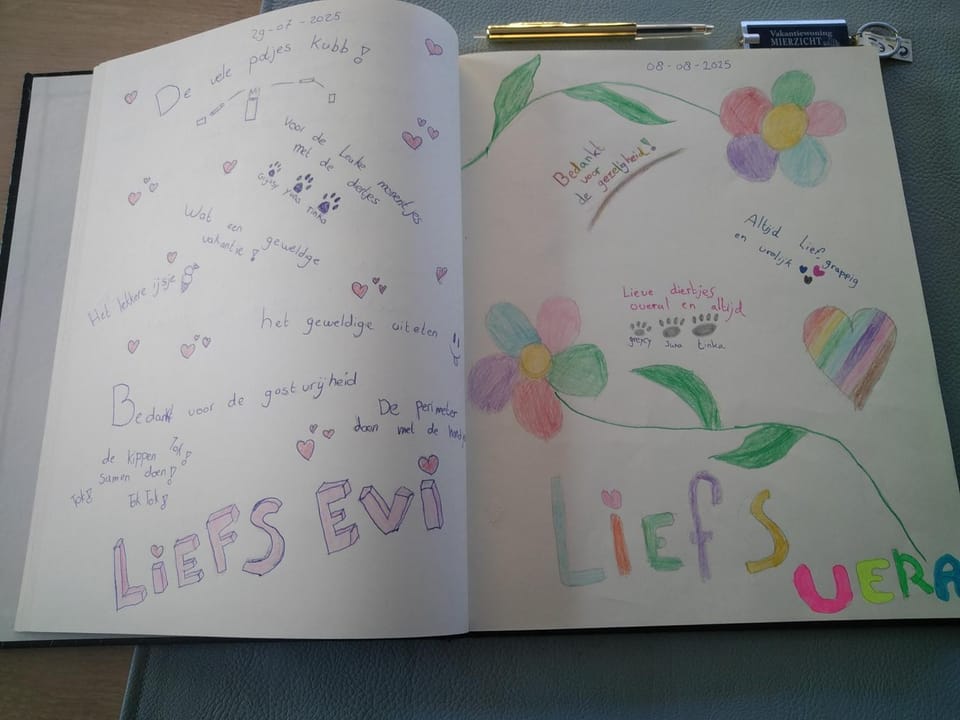 29-07-2025
De vele potjes Kubb!
Voor de leuke momentjes
met de diertjes
Yuna Tinka
Wat een geweldige
vakantie!
Het lekkere ijsje
het geweldige uiteten
Bedankt voor de gastvrijheid
De perimeter
doen met de
de kippen Tok!
samen doen!
Tok! Tok Tok!
LiEFS EVi
08-08-2025
Bedankt
voor
de gezeligheid!
Altijd Lief, grappig
en vrolijk
Lieve diertjes
overal en altijd
tinka
LiEfS
VERA
Vakantiewoning
MIERZICHT